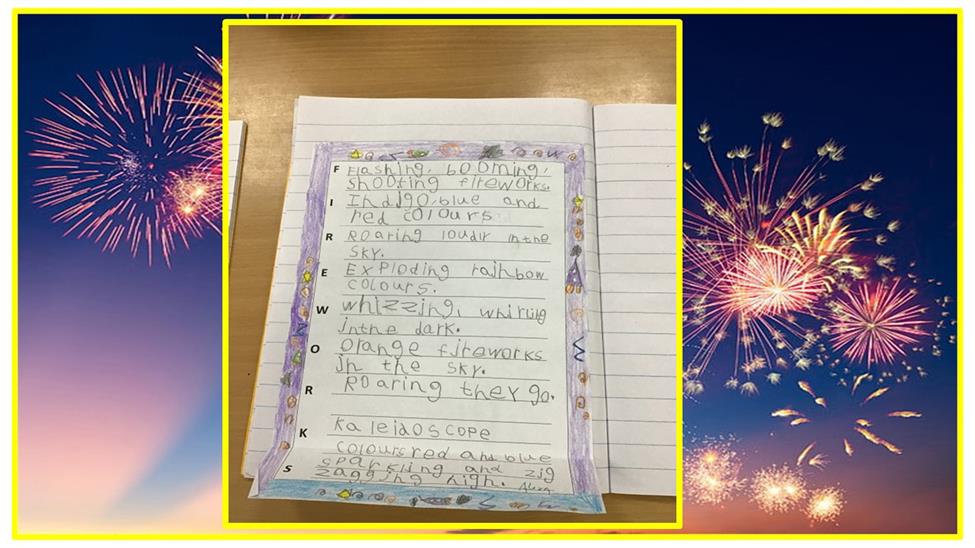 F Flashing, booming,
shooting fireworks.
I Indigo, blue and
red colours
R Roaring loudlr in the
sky.
E Exploding rainbow
colours.
W whizzing, whirling
in the dark.
O Orange fireworks
in the sky.
R Roaring they go.
K kaleidoscope
colours red and blue
S sparkling and zig
zagging high.